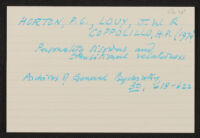 HORTON, P.C., LOUY, J.W. &
COPPOLILLO, H.P. (1974
Personality Disorder and
Transitional relatedness
Archives of General Psychiatry
30, 618-622